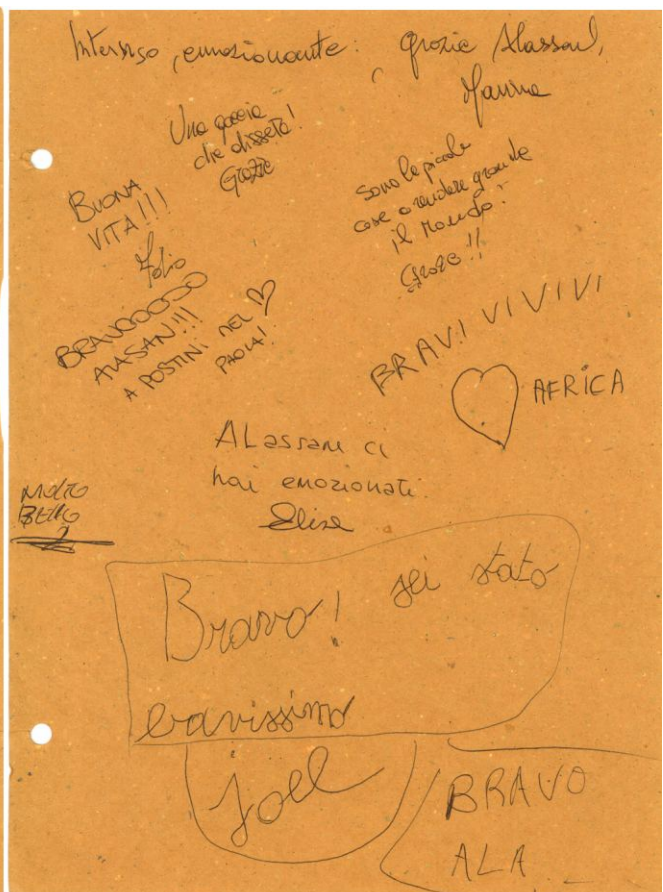 Intenso, emozionante: grazie Alassan,
Marina
Una goccia
che disseta!
Grazie
BUONA
VITA!!!
sono le piccole
cose a rendere grande
il mondo.
Grazie!!
BRAVOOOOO
ALASAN!!!
A POSTINI NEL ♡
PAOLA!
BRAVI VIVIVI
♡ AFRICA
ALassane ci
hai emozionati
Elisa
MOLTO
BELLO
Bravo! sei stato
bravissimo
Joel
BRAVO
ALA